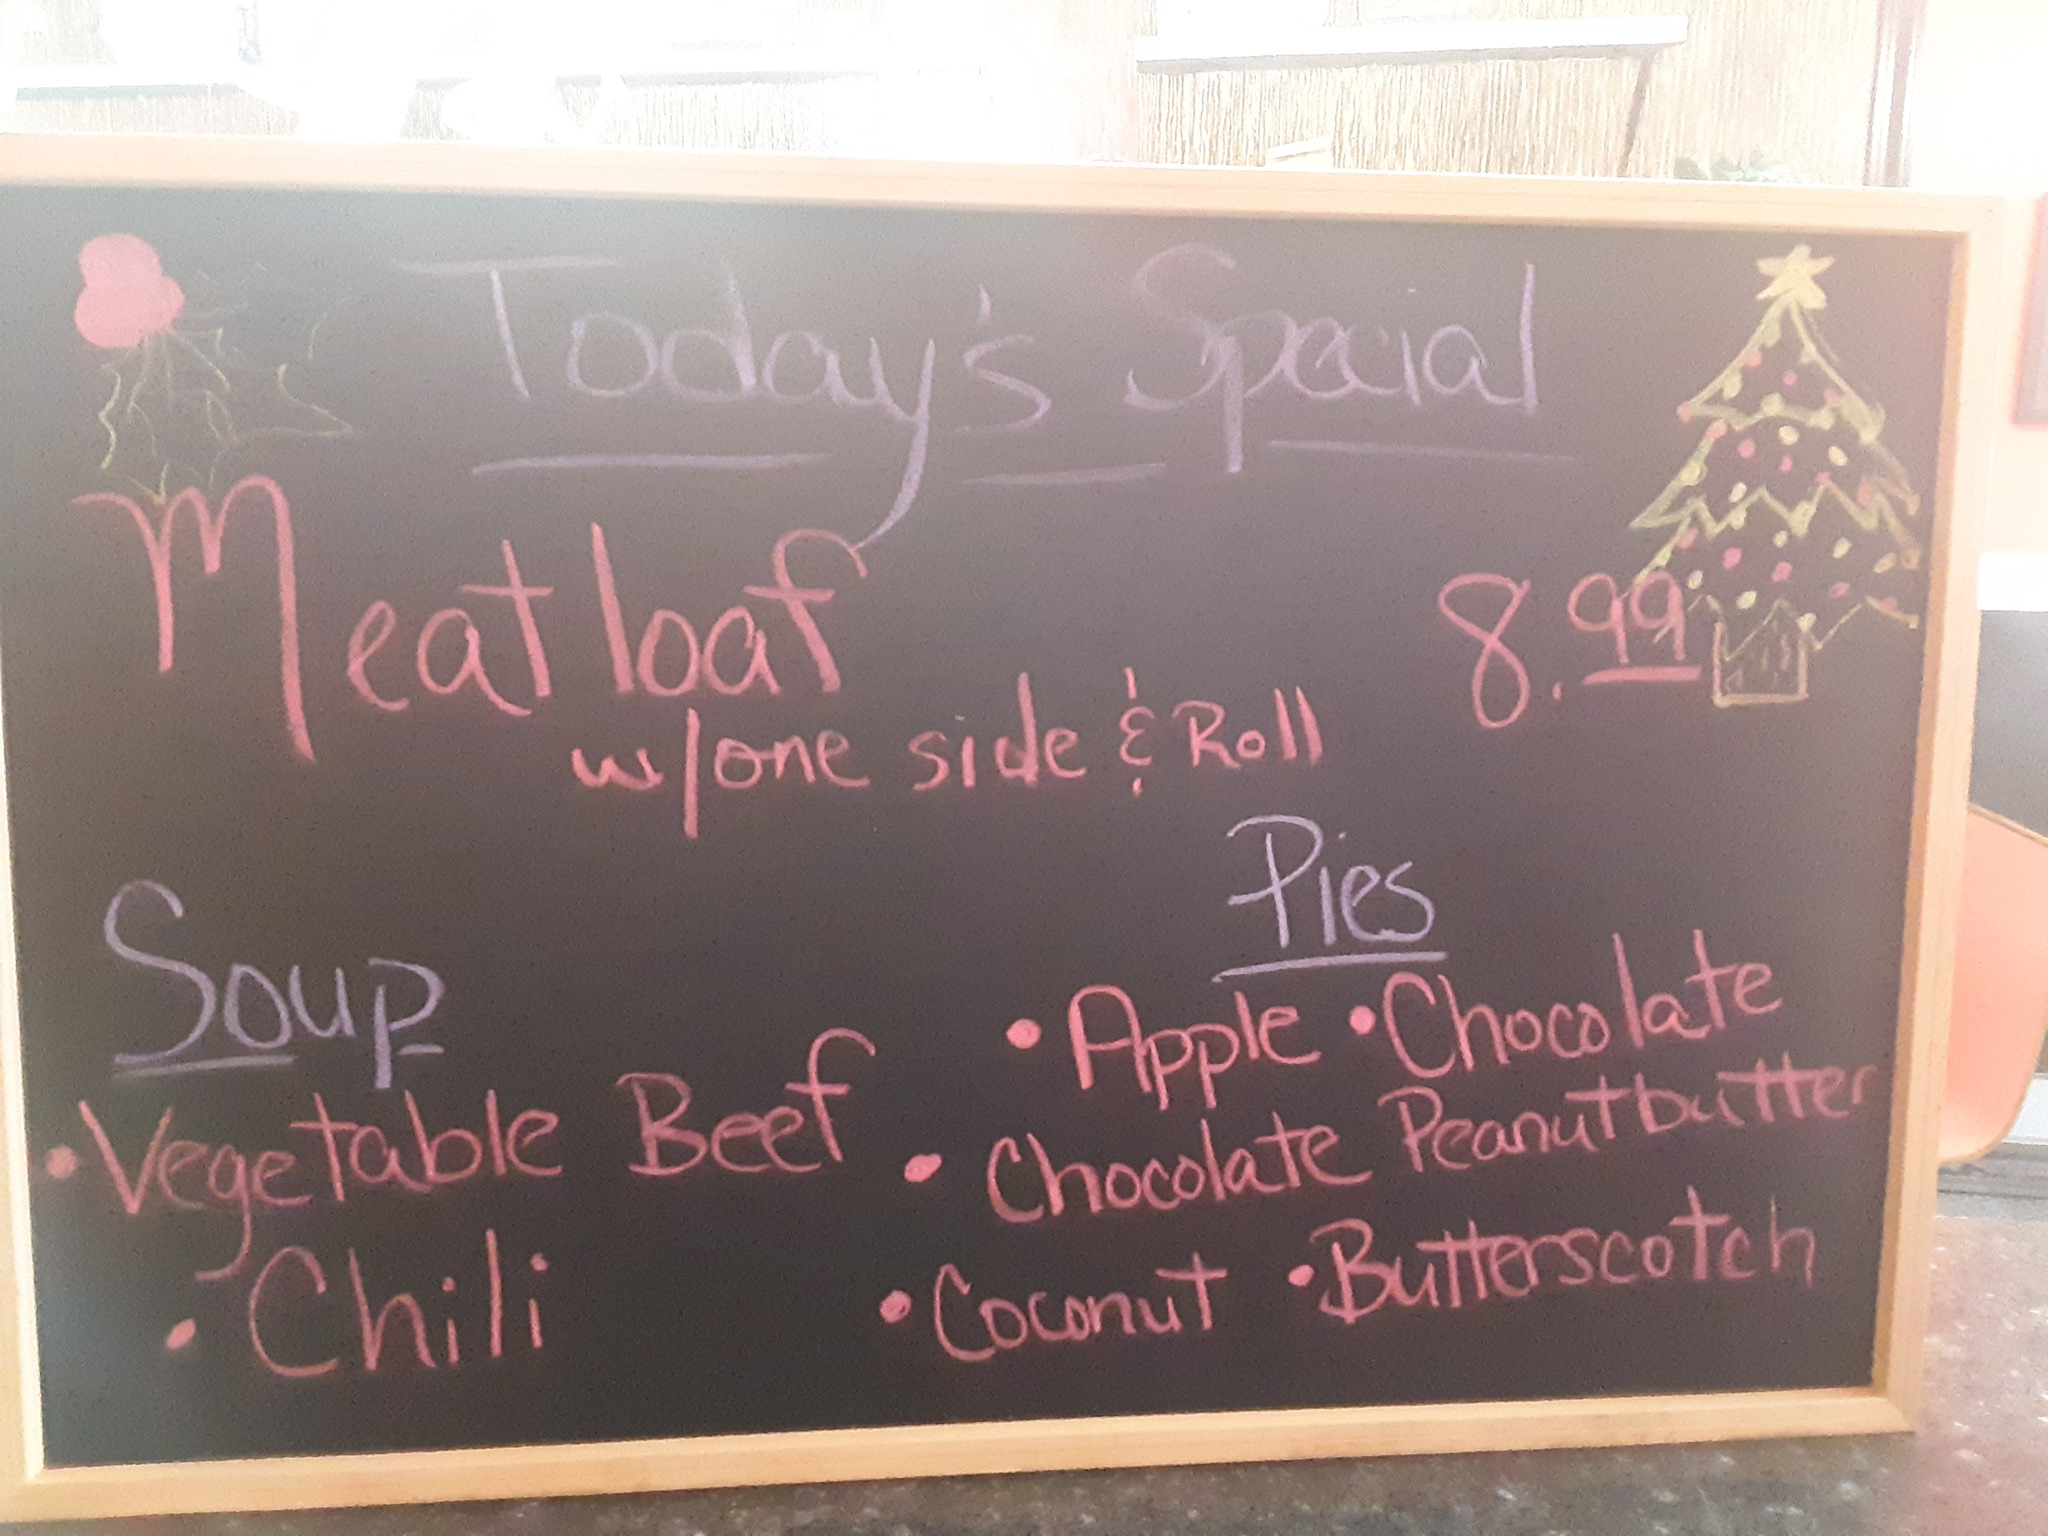 Today's Special
Meatloaf 8.99
w/one side & Roll
Soup
• Vegetable Beef
• Chili
Pies
• Apple • Chocolate
• Chocolate Peanutbutter
• Coconut • Butterscotch